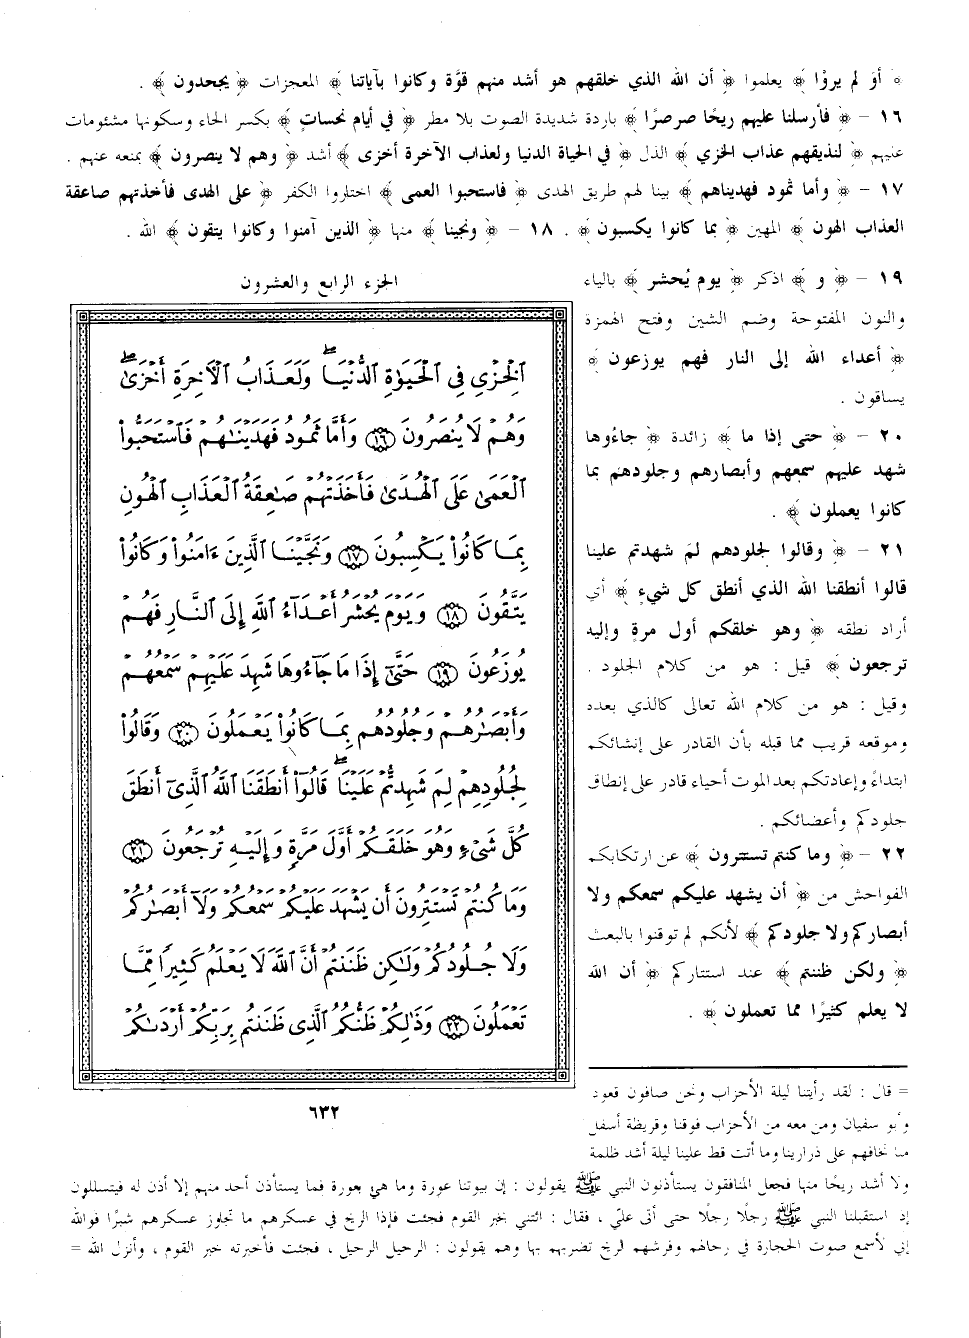 ﴿ أو لم يروْا ﴾ يعلموا ﴿ أن الله الذي خلقهم هو أشد منهم قوَّة وكانوا بآياتنا ﴾ المعجزات ﴿ يجحدون ﴾ .
١٦ - ﴿ فأرسلنا عليهم ريحًا صرصرًا ﴾ باردة شديدة الصوت بلا مطر ﴿ في أيام نحساتٍ ﴾ بكسر الحاء وسكونها مشئومات
عليهم ﴿ لنذيقهم عذاب الخزي ﴾ الذل ﴿ في الحياة الدنيا ولعذاب الآخرة أخزى ﴾ أشد ﴿ وهم لا ينصرون ﴾ بمنعه عنهم .
١٧ - ﴿ وأما ثمود فهديناهم ﴾ بينا لهم طريق الهدى ﴿ فاستحبوا العمى ﴾ اختاروا الكفر ﴿ على الهدى فأخذتهم صاعقة
العذاب الهون ﴾ المهين ﴿ بما كانوا يكسبون ﴾ . ١٨ - ﴿ ونجينا ﴾ منها ﴿ الذين آمنوا وكانوا يتقون ﴾ الله .
الجزء الرابع والعشرون
ٱلْخِزْيِ فِي ٱلْحَيَوٰةِ ٱلدُّنْيَا ۖ وَلَعَذَابُ ٱلْأَخِرَةِ أَخْزَىٰ ۖ
وَهُمْ لَا يُنصَرُونَ ﴿١٦﴾ وَأَمَّا ثَمُودُ فَهَدَيْنَٰهُمْ فَٱسْتَحَبُّوا۟
ٱلْعَمَىٰ عَلَى ٱلْهُدَىٰ فَأَخَذَتْهُمْ صَٰعِقَةُ ٱلْعَذَابِ ٱلْهُونِ
بِمَا كَانُوا۟ يَكْسِبُونَ ﴿١٧﴾ وَنَجَّيْنَا ٱلَّذِينَ ءَامَنُوا۟ وَكَانُوا۟
يَتَّقُونَ ﴿١٨﴾ وَيَوْمَ يُحْشَرُ أَعْدَآءُ ٱللَّهِ إِلَى ٱلنَّارِ فَهُمْ
يُوزَعُونَ ﴿١٩﴾ حَتَّىٰٓ إِذَا مَا جَآءُوهَا شَهِدَ عَلَيْهِمْ سَمْعُهُمْ
وَأَبْصَٰرُهُمْ وَجُلُودُهُم بِمَا كَانُوا۟ يَعْمَلُونَ ﴿٢٠﴾ وَقَالُوا۟
لِجُلُودِهِمْ لِمَ شَهِدتُّمْ عَلَيْنَا ۖ قَالُوٓا۟ أَنطَقَنَا ٱللَّهُ ٱلَّذِىٓ أَنطَقَ
كُلَّ شَىْءٍ وَهُوَ خَلَقَكُمْ أَوَّلَ مَرَّةٍ وَإِلَيْهِ تُرْجَعُونَ ﴿٢١﴾
وَمَا كُنتُمْ تَسْتَتِرُونَ أَن يَشْهَدَ عَلَيْكُمْ سَمْعُكُمْ وَلَآ أَبْصَٰرُكُمْ
وَلَا جُلُودُكُمْ وَلَٰكِن ظَنَنتُمْ أَنَّ ٱللَّهَ لَا يَعْلَمُ كَثِيرًا مِّمَّا
تَعْمَلُونَ ﴿٢٢﴾ وَذَٰلِكُمْ ظَنُّكُمُ ٱلَّذِى ظَنَنتُم بِرَبِّكُمْ أَرْدَىٰكُمْ
٦٣٢
١٩ - ﴿ و ﴾ اذكر ﴿ يوم يُحشر ﴾ بالياء
والنون المفتوحة وضم الشين وفتح الهمزة
﴿ أعداء الله إلى النار فهم يوزعون ﴾
يساقون .
٢٠ - ﴿ حتى إذا ما ﴾ زائدة ﴿ جاءوها
شهد عليهم سمعهم وأبصارهم وجلودهم بما
كانوا يعملون ﴾ .
٢١ - ﴿ وقالوا لجلودهم لمَ شهدتم علينا
قالوا أنطقنا الله الذي أنطق كل شيءٍ ﴾ أي
أراد نطقه ﴿ وهو خلقكم أول مرةٍ وإليه
ترجعون ﴾ قيل : هو من كلام الجلود .
وقيل : هو من كلام الله تعالى كالذي بعده
وموقعه قريب مما قبله بأن القادر على إنشائكم
ابتداءً وإعادتكم بعد الموت أحياء قادر على إنطاق
جلودكم وأعضائكم .
٢٢ - ﴿ وما كنتم تستترون ﴾ عن ارتكابكم
الفواحش من ﴿ أن يشهد عليكم سمعكم ولا
أبصاركم ولا جلودكم ﴾ لأنكم لم توقنوا بالبعث
﴿ ولكن ظننتم ﴾ عند استتاركم ﴿ أن الله
لا يعلم كثيرًا مما تعملون ﴾ .
= قال : لقد رأيتنا ليلة الأحزاب ونحن صافون قعود
وأبو سفيان ومن معه من الأحزاب فوقنا وقريظة أسفل
منا نخافهم على ذرارينا وما أتت قط علينا ليلة أشد ظلمة
ولا أشد ريحًا منها فجعل المنافقون يستأذنون النبي ﷺ يقولون : إن بيوتنا عورة وما هي بعورة فما يستأذن أحد منهم إلا أذن له فيتسللون
إذ استقبلنا النبي ﷺ رجلًا رجلًا حتى أتى عليّ ، فقال : ائتني بخبر القوم فجئت فإذا الريح في عسكرهم ما تجاوز عسكرهم شبرًا فوالله
إني لأسمع صوت الحجارة في رحالهم وفرشهم الريح تضربهم بها وهم يقولون : الرحيل الرحيل ، فجئت فأخبرته خبر القوم ، وأنزل الله =